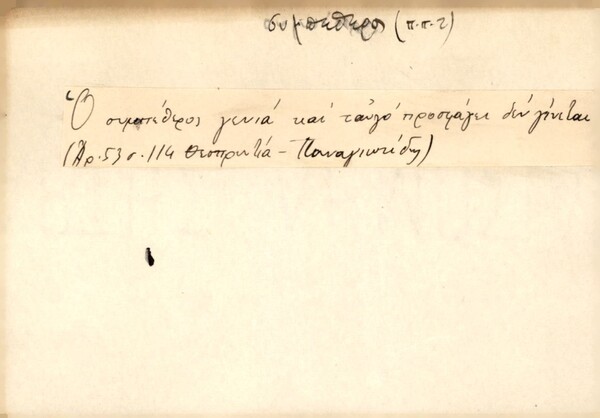 συμπέθερος (π.π.τ)
Ὁ συμπέθερος γενιά καί τ' αὐγό προσφάγι δέν γίνεται
(Ἀρ. 53 σ. 114 Θεσπρωτιά - Παναγιωτίδη)